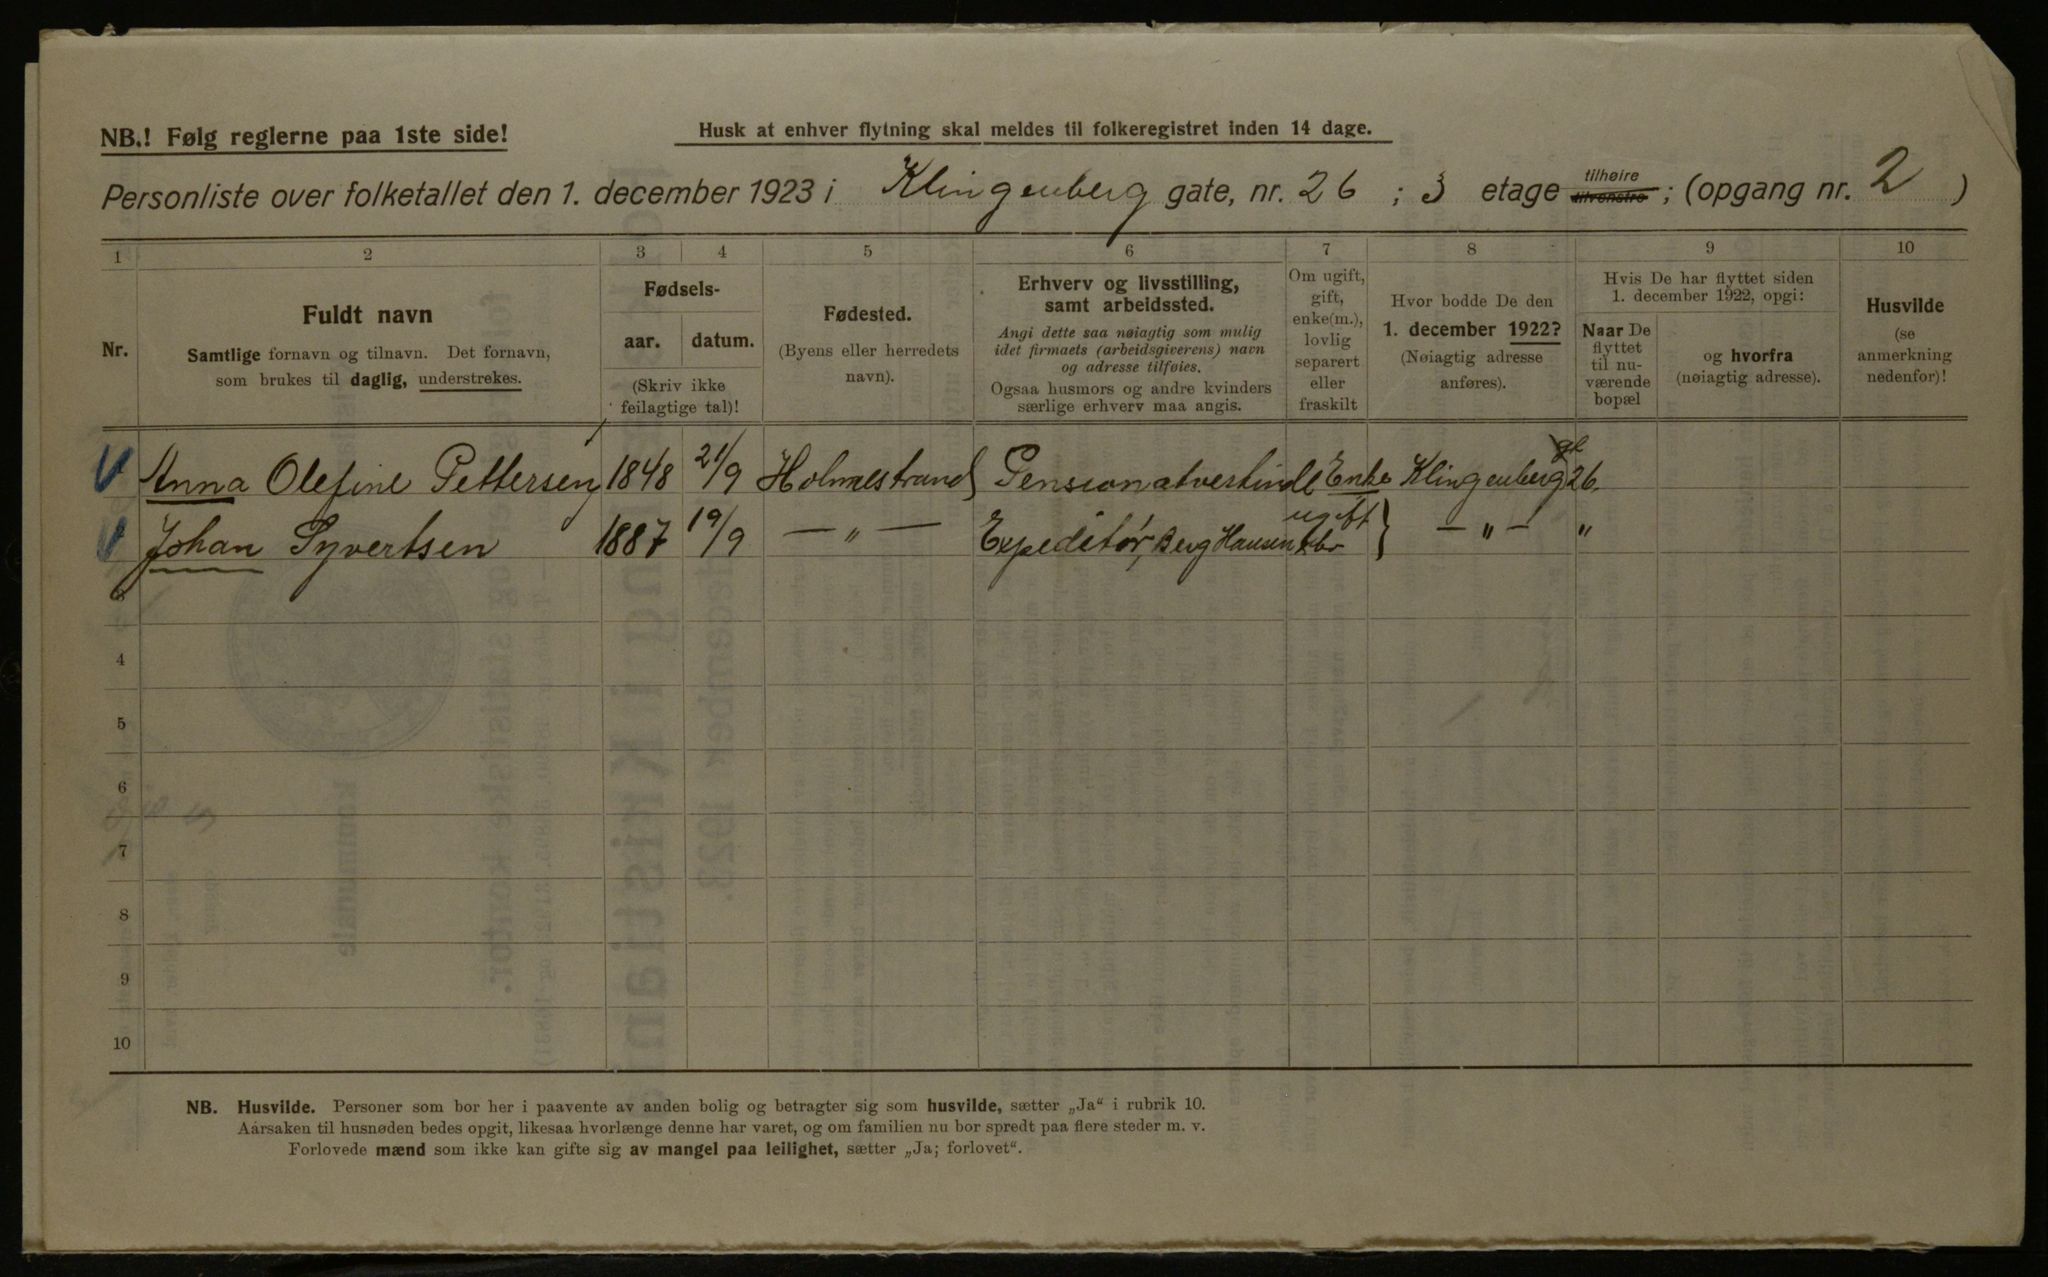 NB.! Følg reglerne paa 1ste side!
Husk at enhver flytning skal meldes til folkeregistret inden 14 dage.
Personliste over folketallet den 1. december 1923 i Klingenberg gate, nr. 26 ; 3 etage tilhøire tilvenstre ; (opgang nr. 2 )
1 2 3 4 5 6 7 8 9 10
Nr.
Fuldt navn
Samtlige fornavn og tilnavn. Det fornavn,
som brukes til daglig, understrekes.
Fødsels-
aar. datum.
(Skriv ikke
feilagtige tal)!
Fødested.
(Byens eller herredets
navn).
Erhverv og livsstilling,
samt arbeidssted.
Angi dette saa nøiagtig som mulig
idet firmaets (arbeidsgiverens) navn
og adresse tilføies.
Ogsaa husmors og andre kvinders
særlige erhverv maa angis.
Om ugift,
gift,
enke(m.),
lovlig
separert
eller
fraskilt
Hvor bodde De den
1. december 1922?
(Nøiagtig adresse
anføres).
Hvis De har flyttet siden
1. december 1922, opgi:
Naar De
flyttet
til nu-
værende
bopæl
og hvorfra
(nøiagtig adresse).
Husvilde
(se
anmerkning
nedenfor)!
Anna Olefine Pettersen 1848 21/9 Holmestrand Pensionatvertinde Enke Klingenberg gt 26.
Johan Syvertsen 1887 19/9 — „ — Expeditør, Berg Hansen ugift — „ — „
3
4
5
6
7
8
9
10
NB. Husvilde. Personer som bor her i paavente av anden bolig og betragter sig som husvilde, sætter „Ja“ i rubrik 10.
Aarsaken til husnøden bedes opgit, likesaa hvorlænge denne har varet, og om familien nu bor spredt paa flere steder m. v.
Forlovede mænd som ikke kan gifte sig av mangel paa leilighet, sætter „Ja; forlovet“.